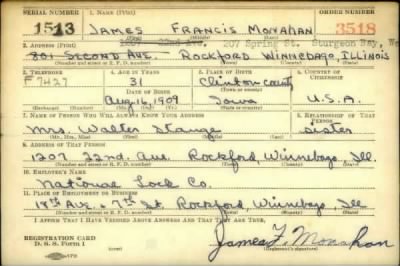 SERIAL NUMBER 1. NAME (Print) ORDER NUMBER
1513 JAMES FRANCIS MONAHAN 3518
(First) (Middle) (Last)
1207 22nd Ave. 207 Spring St. Sturgeon Bay,
2. ADDRESS (Print)
801 SECOND AVE. ROCKFORD WINNEBAGO ILLINOIS
(Number and street or R. F. D. number) (Town) (County) (State)
3. TELEPHONE 4. AGE IN YEARS 5. PLACE OF BIRTH 6. COUNTRY OF CITIZENSHIP
F 7427 31 Clinton county
DATE OF BIRTH (Town or county)
Aug. 16, 1909 Iowa U.S.A.
(Exchange) (Number) (Mo.) (Day) (Yr.) (State or country)
7. NAME OF PERSON WHO WILL ALWAYS KNOW YOUR ADDRESS 8. RELATIONSHIP OF THAT PERSON
Mrs. Walter Stange sister
(Mr., Mrs., Miss) (First) (Middle) (Last)
9. ADDRESS OF THAT PERSON
1207 22nd Ave Rockford, Winnebago, Ill.
(Number and street or R. F. D. number) (Town) (County) (State)
10. EMPLOYER'S NAME
National Lock Co.
11. PLACE OF EMPLOYMENT OR BUSINESS
18th Ave. & 7th St. Rockford, Winnebago, Ill.
(Number and street or R. F. D. number) (Town) (County) (State)
I AFFIRM THAT I HAVE VERIFIED ABOVE ANSWERS AND THAT THEY ARE TRUE.
REGISTRATION CARD
D. S. S. Form 1 James F. Monahan
(Registrant's signature)